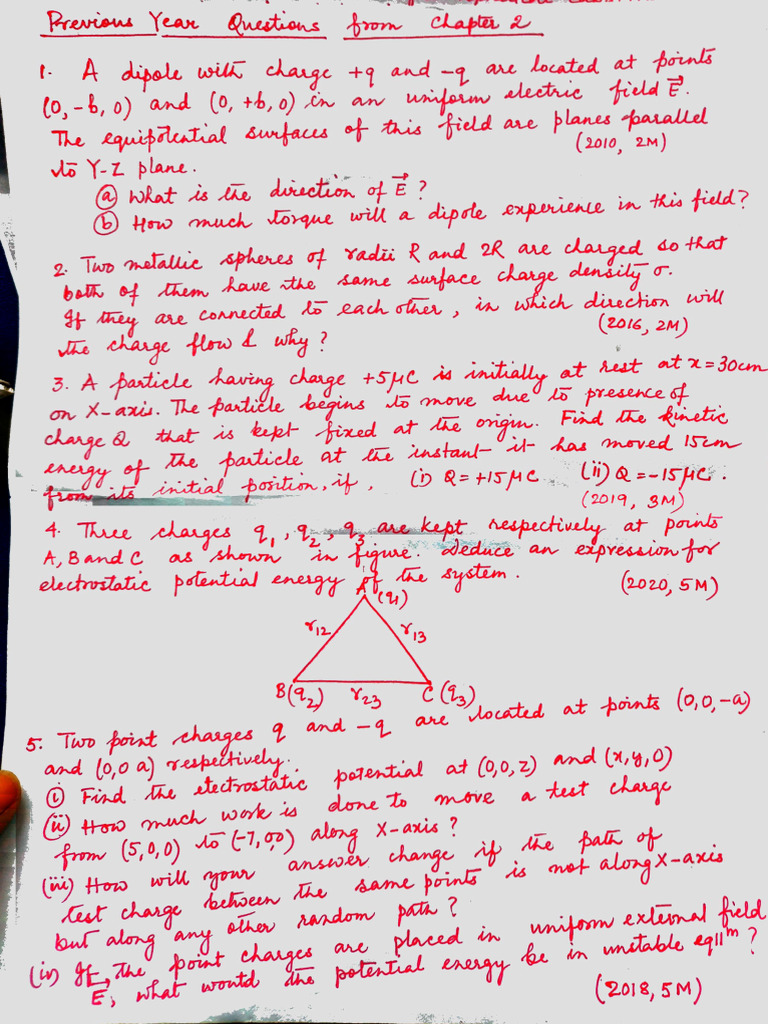 Previous Year Questions from Chapter 2
1. A dipole with charge +q and -q are located at points
(0, -b, 0) and (0, +b, 0) in an uniform electric field E⃗.
The equipotential surfaces of this field are planes parallel
to Y-Z plane. (2010, 2M)
(a) What is the direction of E⃗ ?
(b) How much torque will a dipole experience in this field?
2. Two metallic spheres of radii R and 2R are charged so that
both of them have the same surface charge density σ.
If they are connected to each other, in which direction will
the charge flow & why ? (2016, 2M)
3. A particle having charge +5μC is initially at rest at x = 30cm
on X-axis. The particle begins to move due to presence of
charge Q that is kept fixed at the origin. Find the kinetic
energy of the particle at the instant it has moved 15cm
from its initial position, if, (i) Q = +15μC (ii) Q = -15μC.
(2019, 3M)
4. Three charges q₁, q₂, q₃ are kept respectively at points
A, B and C as shown in figure. Deduce an expression for
electrostatic potential energy of the system. (2020, 5M)
A (q₁)
r₁₂ r₁₃
B(q₂) r₂₃ C (q₃)
5. Two point charges q and -q are located at points (0,0,-a)
and (0,0 a) respectively.
(i) Find the electrostatic potential at (0,0,z) and (x,y,0)
(ii) How much work is done to move a test charge
from (5,0,0) to (-7,0,0) along X-axis ?
(iii) How will your answer change if the path of
test charge between the same points is not along X-axis
but along any other random path ?
(iv) If, the point charges are placed in uniform external field
E⃗, what would the potential energy be in unstable eqllᵐ ?
(2018, 5M)